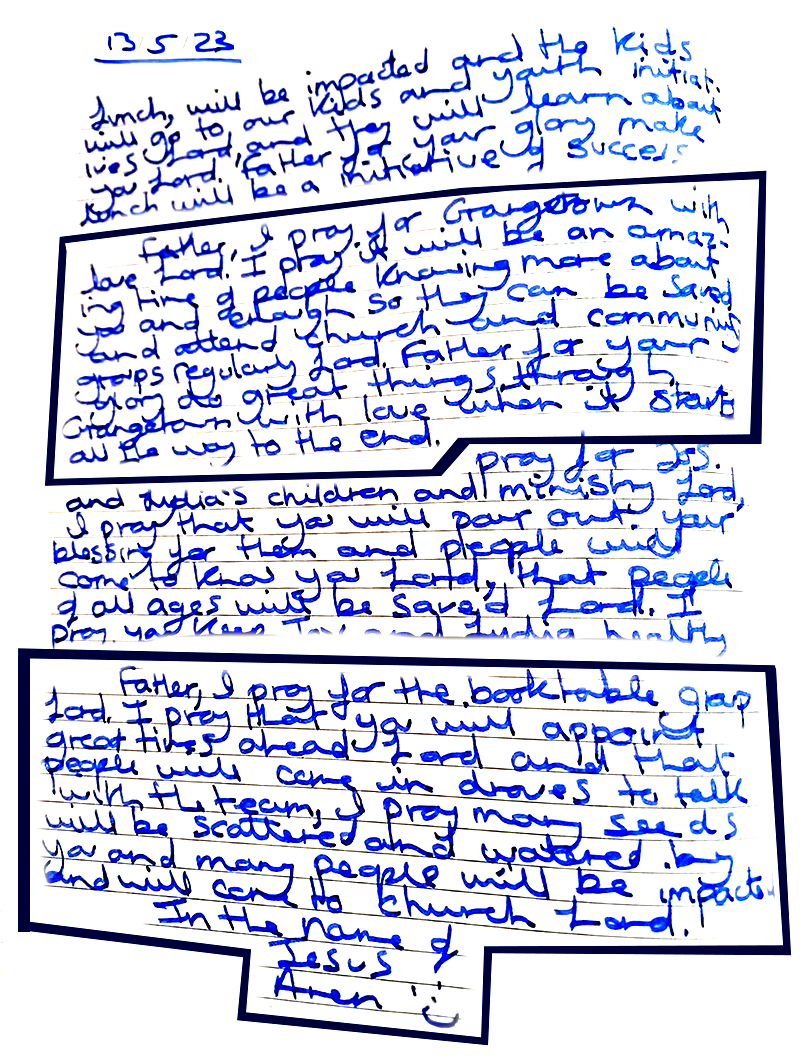 13 5 23
Lunch, will be impacted and the kids
will go to our kids and youth initiat.
ives Lord, and they will learn about
you Lord. Father for your glory make
Lunch will be a initiative of success
Father, I pray for Grangetown with
love Lord. I pray it will be an amaz.
ing time of people knowing more about
you and enough so they can be saved
and attend church and community
groups regularly Lord. Father for your
glory do great things through
Grangetown with love when it starts
all the way to the end.
pray for Jos.
and Lydia's children and ministry Lord,
I pray that you will pour out your
blessing for them and people will
come to know you Lord, that people
of all ages will be saved Lord. I
pray you keep and Lydia healthy
Father, I pray for the booktable group
Lord. I pray that you will appoint
great times ahead Lord and that
people will come in droves to talk
with the team, I pray many seeds
will be scattered and watered by
you and many people will be impacted
and will come to church Lord.
In the name of
Jesus
Amen